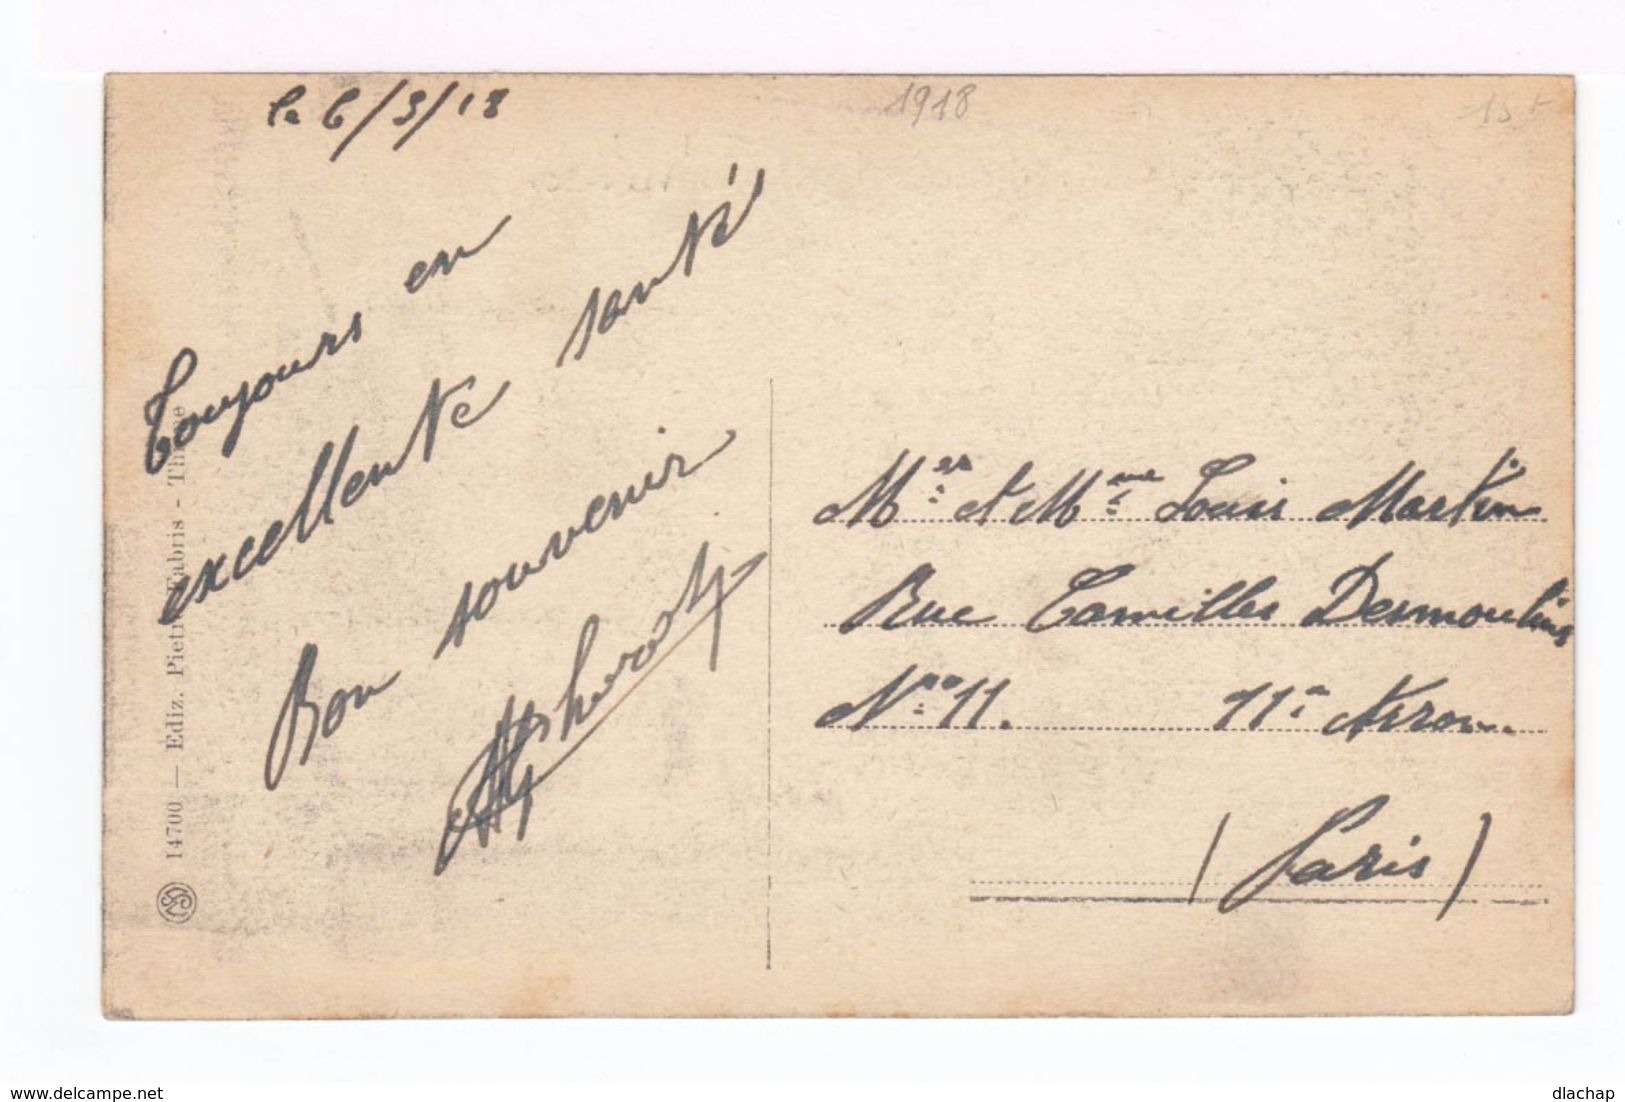 le 6/3/18
1918
Toujours en
excellente santé
Bon souvenir
Mer et Mme Louis Martin
Rue Camilles Desmoulins
No 11. 11e Arron.
(Paris)
14700 — Ediz. Pietro Fabris - Thiene
delcampe.net
dlachap